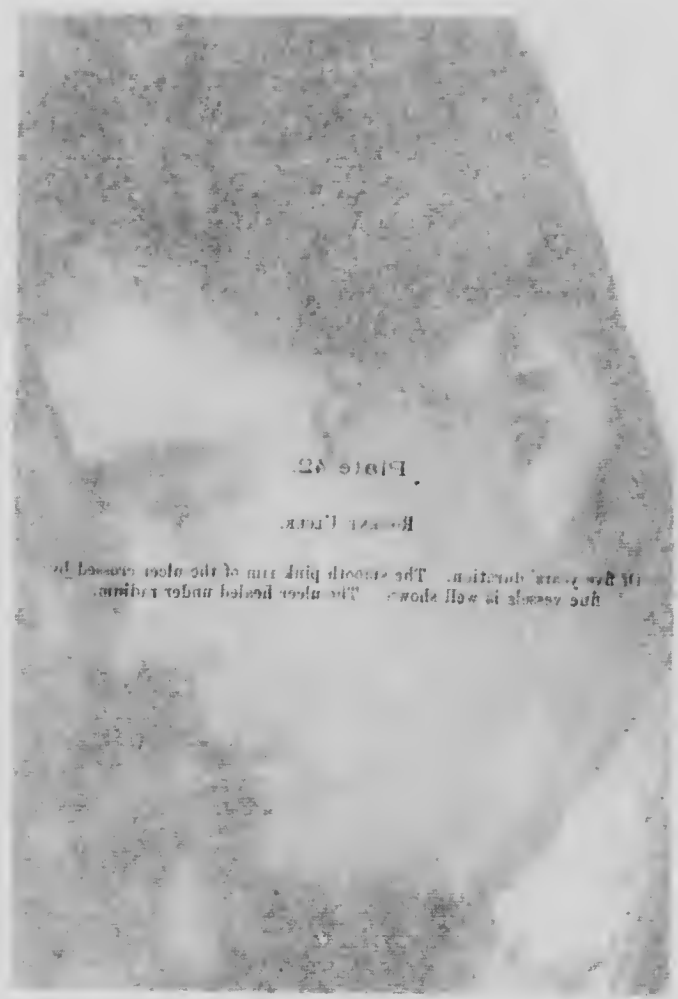 Plate 42.
Rodent Ulcer.
Of five years' duration. The smooth pink rim of the ulcer crossed by
fine vessels is well shown. The ulcer healed under radium.